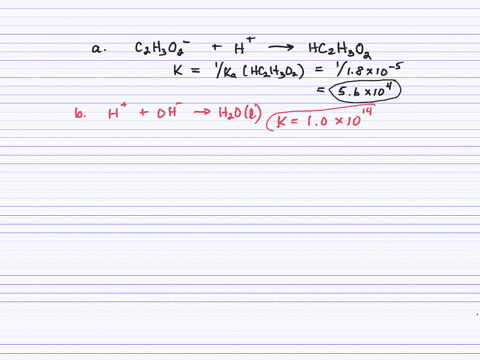 a. C₂H₃O₂⁻ + H⁺ → HC₂H₃O₂
K = 1/Ka (HC₂H₃O₂) = 1/1.8 × 10⁻⁵
= 5.6 × 10⁴
b. H⁺ + OH⁻ → H₂O(l) K = 1.0 × 10¹⁴